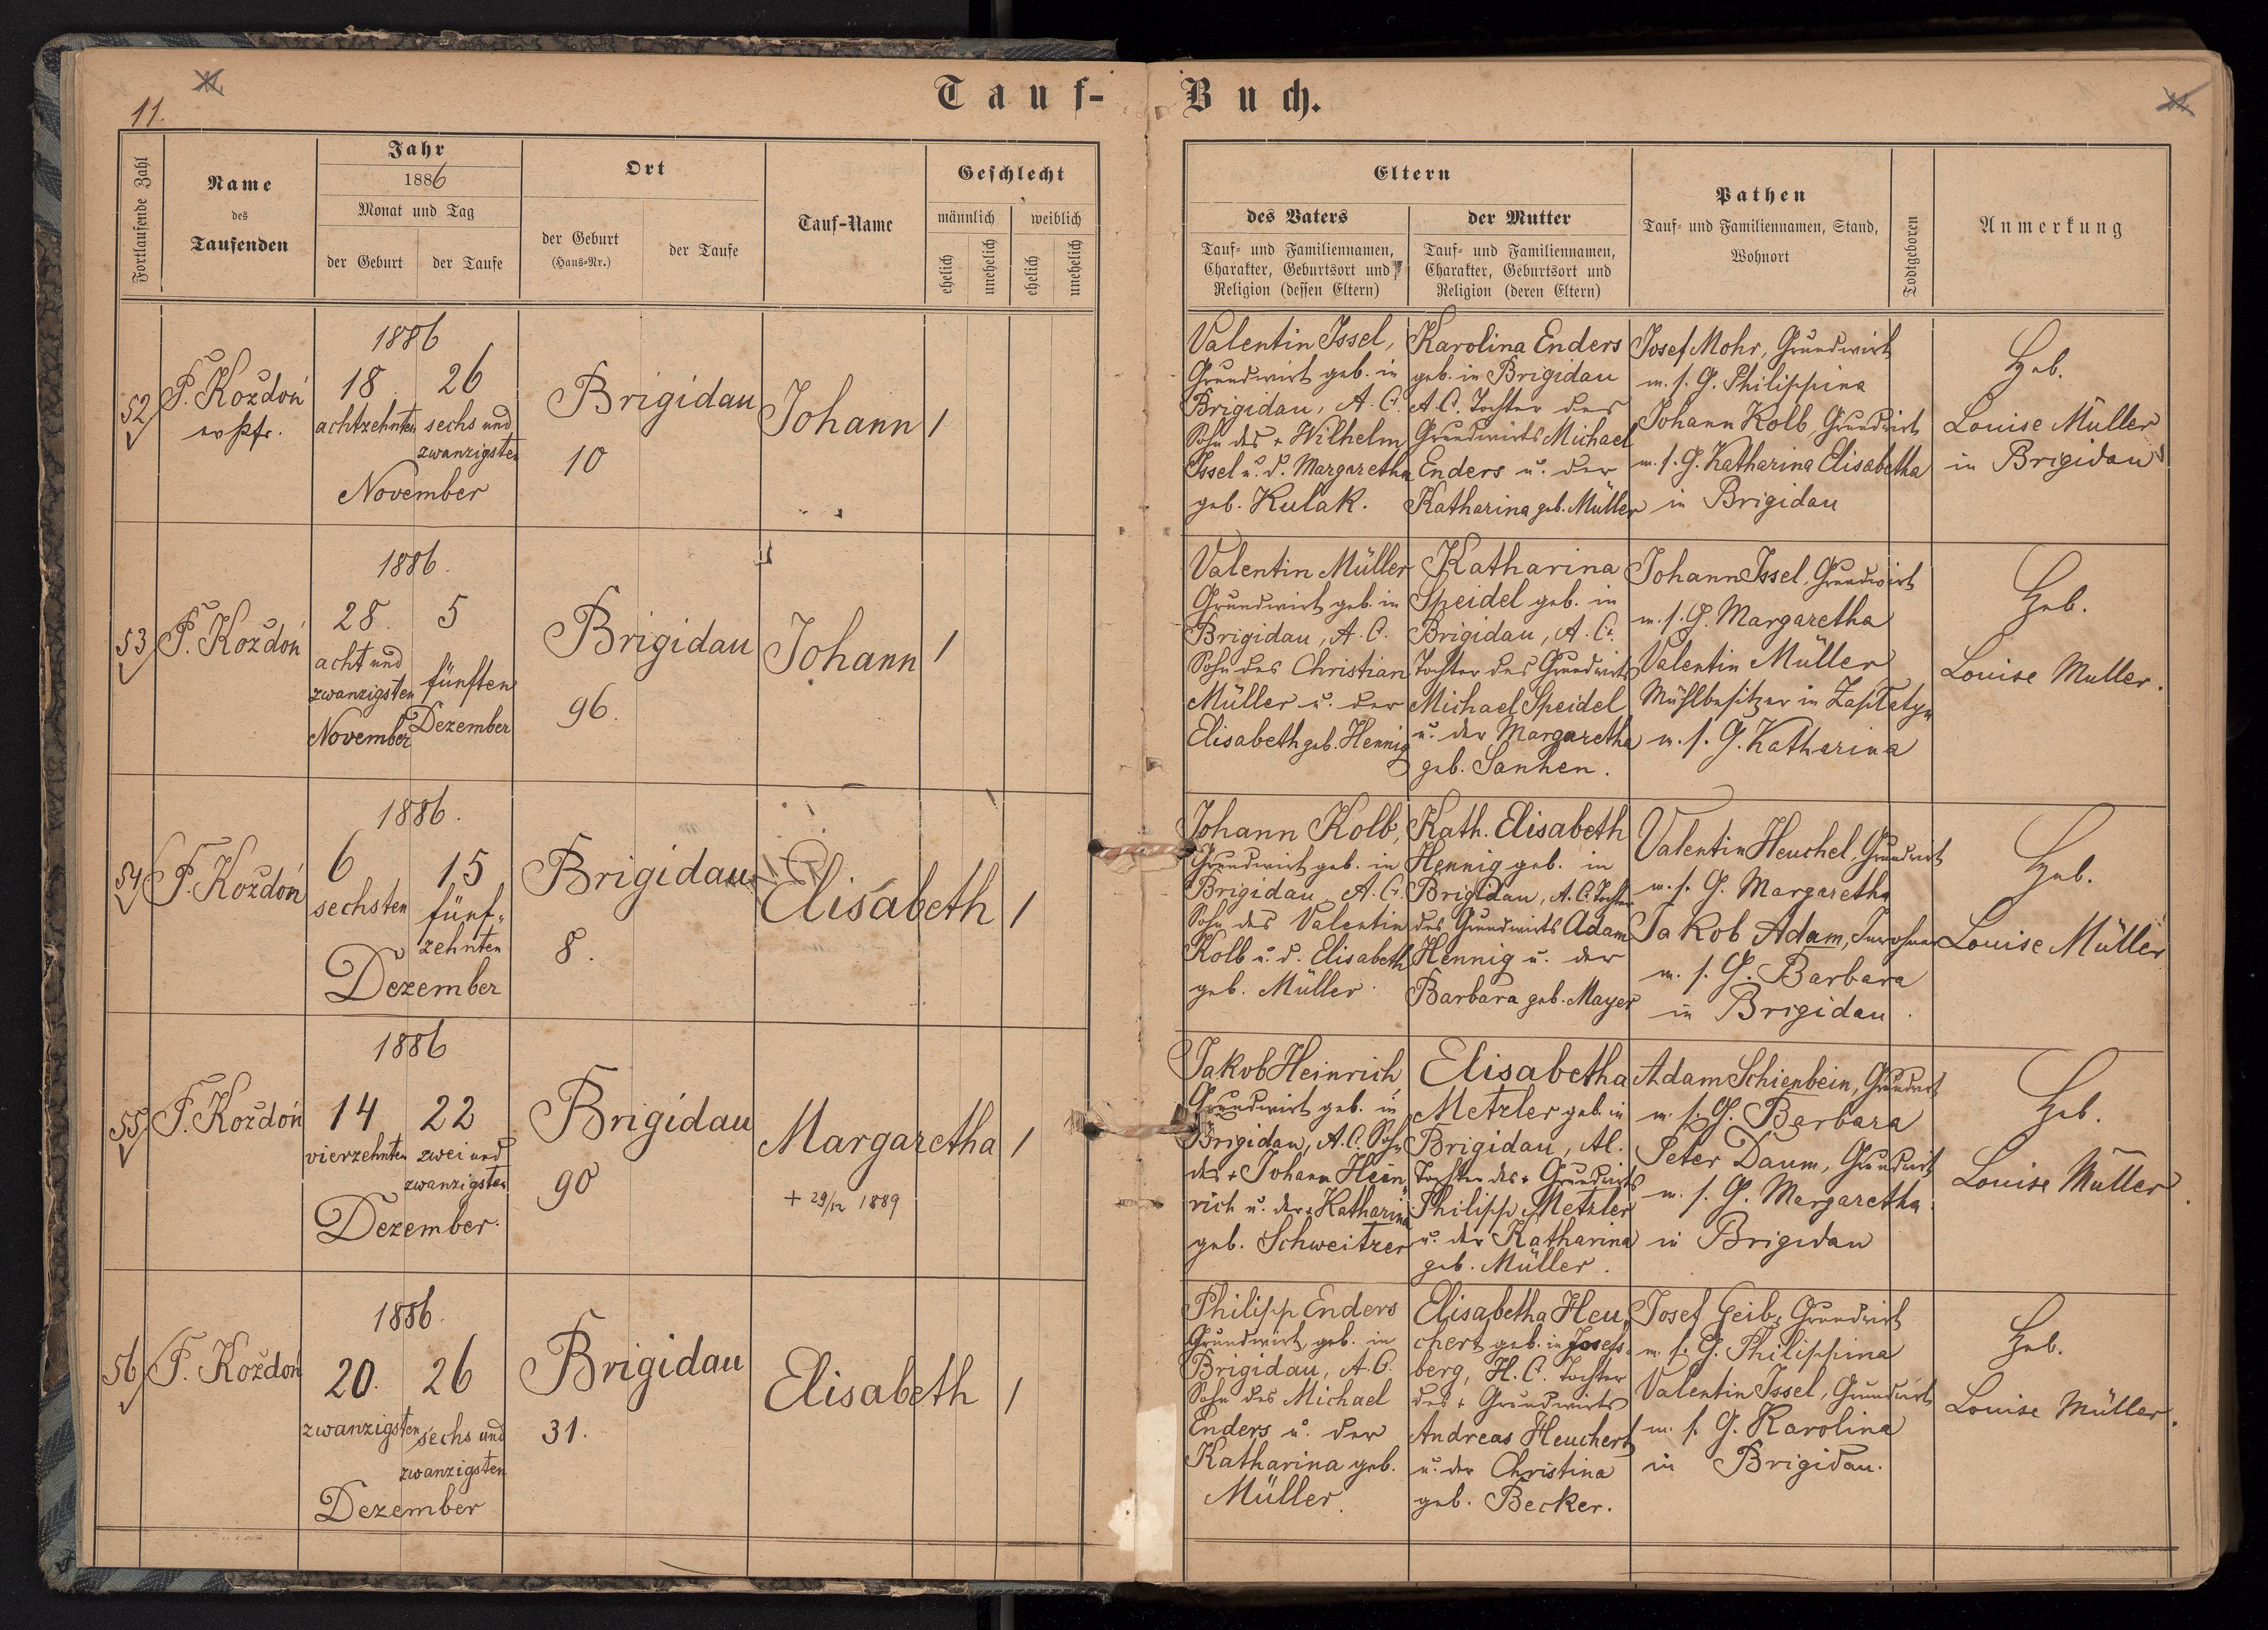 Tauf-Buch.
11.
Fortlaufende Zahl
Name
des
Taufenden
Jahr
1886
Monat und Tag
der Geburt
der Taufe
Ort
der Geburt
(Haus-Nr.)
der Taufe
Tauf-Name
Geschlecht
männlich
weiblich
ehelich
unehelich
ehelich
unehelich
Eltern
des Vaters
Tauf- und Familiennamen,
Charakter, Geburtsort und
Religion (dessen Eltern)
der Mutter
Tauf- und Familiennamen,
Charakter, Geburtsort und
Religion (deren Eltern)
Pathen
Tauf- und Familiennamen, Stand,
Wohnort
Todtgeboren
Anmerkung
52
P. Koždoń
1886
18
achtzehnten
26
sechs und
zwanzigsten
November
Brigidau
10
Johann
1
Valentin Issel,
Grundwirt geb. in
Brigidau, A. C.
Sohn des + Wilhelm
Issel u. d. Margaretha
geb. Kulak.
Karolina Enders
geb. in Brigidau
A. C. Tochter des
Grundwirts Michael
Enders u. der
Katharina geb. Müller
Josef Mohr, Grundwirt
m. s. G. Philippina
Johann Kolb, Grundwirt
m. s. G. Katharina Elisabetha
in Brigidau
Heb.
Louise Müller
in Brigidau
53
P. Koždoń
1886.
28.
acht und
zwanzigsten
November
5
fünften
Dezember
Brigidau
96.
Johann
1
Valentin Müller
Grundwirt geb. in
Brigidau, A. C.
Sohn des Christian
Müller u. der
Elisabeth geb. Hennig
Katharina
Speidel geb. in
Brigidau, A. C.
Tochter des Grundwirts
Michael Speidel
u. der Margaretha
geb. Sanhen.
Johann Issel, Grundwirt
m. s. G. Margaretha
Valentin Müller
Mühlbesitzer in
m. s. G. Katharina
Heb.
Louise Müller.
54
P. Koždoń
1886.
6
sechsten
15
fünf-
zehnten
Dezember
Brigidau
8.
Elisabeth
1
Johann Kolb,
Grundwirt geb. in
Brigidau A. C.
Sohn des Valentin
Kolb u. d. Elisabeth
geb. Müller.
Kath. Elisabeth
Hennig geb. in
Brigidau, A. C. Tochter
des Grundwirts Adam
Hennig u. der
Barbara geb. Mayer
Valentin Heuchel, Grundwirt
m. s. G. Margaretha
Jakob Adam, Inwohner
m. s. G. Barbara
in Brigidau.
Heb.
Louise Müller
55
P. Koždoń
1886
14
vierzehnten
22
zwei und
zwanzigsten
Dezember.
Brigidau
90
Margaretha
+ 29/12 1889
1
Jakob Heinrich
Grundwirt geb. in
Brigidau, A. C. Sohn
des + Johann Hein-
rich u. der + Katharina
geb. Schweitzer
Elisabetha
Metzler geb. in
Brigidau, A C.
Tochter des + Grundwirts
Philipp Metzler
u. der Katharina
geb. Müller.
Adam Schienbein, Grundwirt
m. s. G. Barbara
Peter Daum, Grundwirt
m. s. G. Margaretha
in Brigidau
Heb.
Louise Müller.
56
P. Koždoń
1886.
20.
zwanzigsten
26
sechs und
zwanzigsten
Dezember
Brigidau
31.
Elisabeth
1
Philipp Enders
Grundwirt, geb. in
Brigidau, A. C.
Sohn des Michael
Enders u. der
Katharina geb.
Müller.
Elisabetha Heu-
chert geb. in Josefs-
berg, H. C. Tochter
des + Grundwirts
Andreas Heuchert
u. der Christina
geb. Becker.
Josef Geib, Grundwirt
m. s. G. Philippina
Valentin Issel, Grundwirt
m. s. G. Karolina
in Brigidau.
Heb.
Louise Müller.